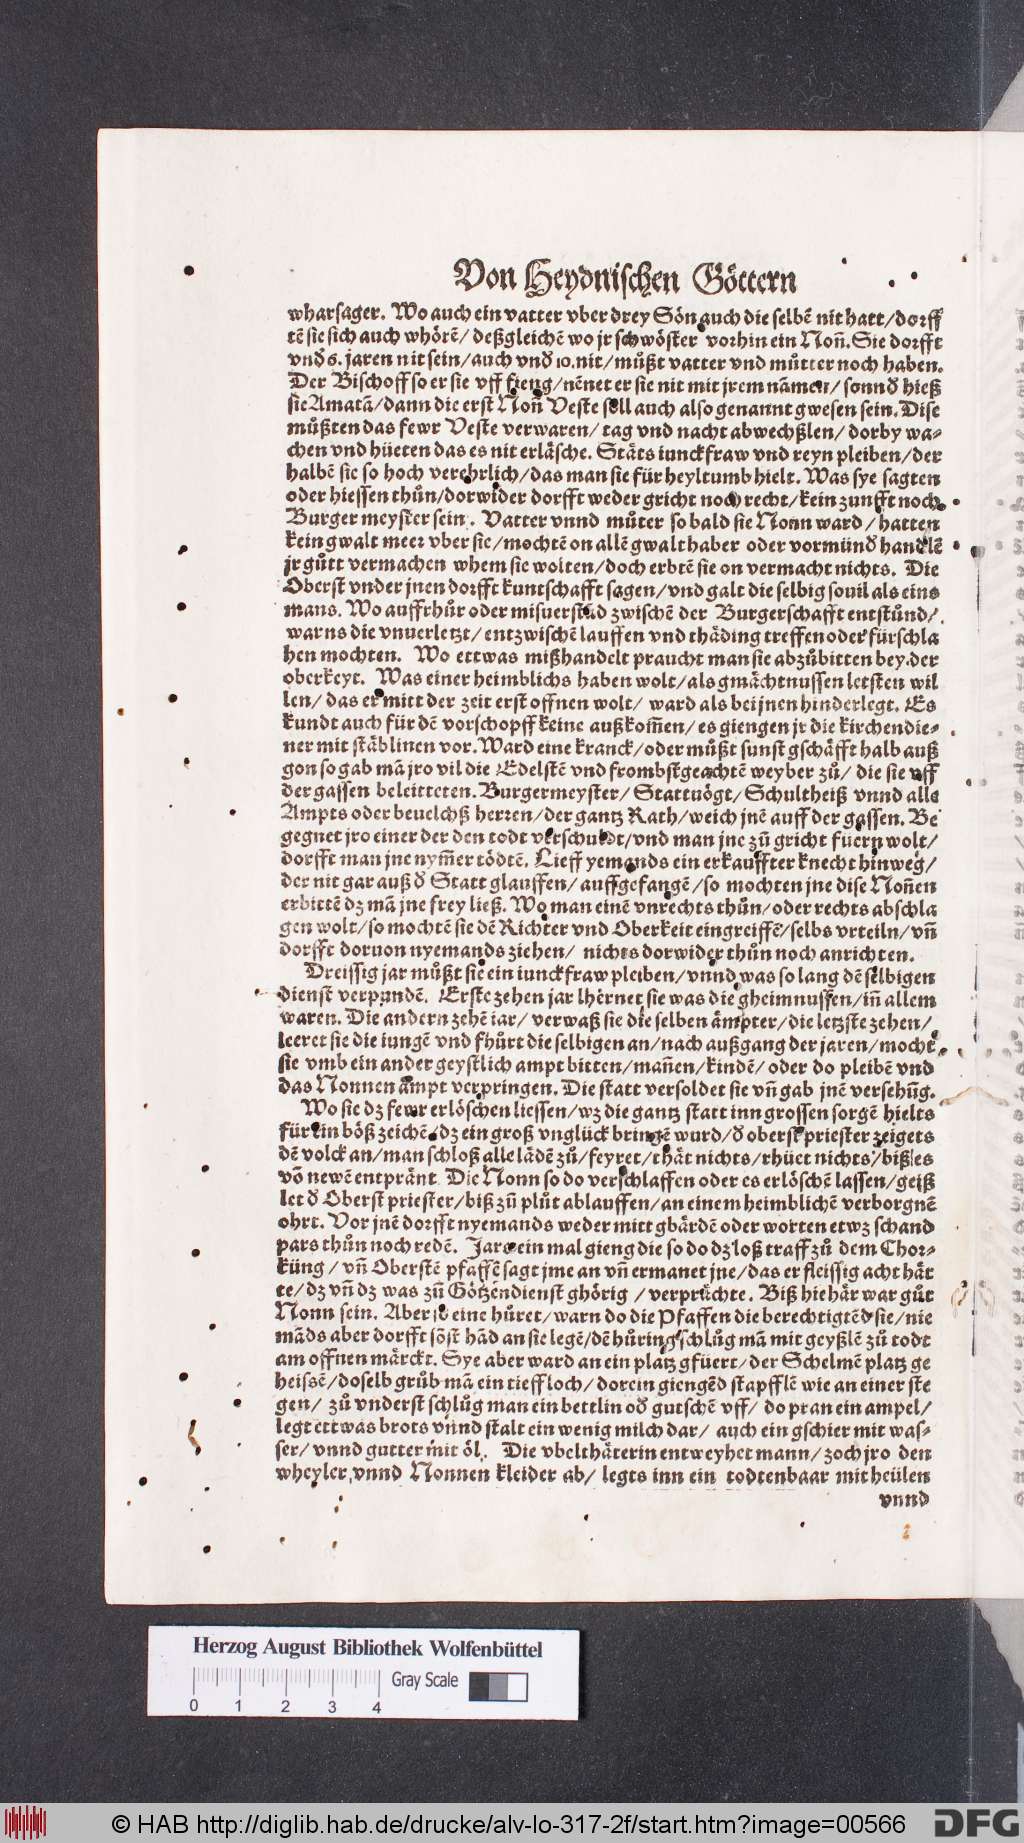 Von Heydnischen Göttern
wharsager. Wo auch ein vatter vber drey Sön auch die selbē nit hatt/dorff
tē sie sich auch whörē/ deßgleichē wo jr schwöster vorhin ein Noñ. Sie dorfft
vnd̃ 6. jaren nit sein/auch vnd̃ 10. nit/ můßt vatter vnd můtter noch haben.
Der Bischoff so er sie vff fieng/nēnet er sie nit mit jrem nāmen/ sonnd̃ hieß
sie Amatā/dann die erst Noñ Veste sell auch also genannt gwesen sein. Dise
můßten das fewr Veste verwaren/ tag vnd nacht abwechßlen/ dorby wa-
chen vnd hüeten das es nit erläsche. Stäts iunckfraw vnd reyn pleiben/der
halbē sie so hoch verehrlich/das man sie für heyltumb hielt. Was sye sagten
oder hiessen thůn/dorwider dorfft weder gricht noch recht/kein zunfft noch
Burgermeyster sein. Vatter vnnd můter so bald sie Nonn ward/ hatten
kein gwalt meer vber sie/mochtē on allē gwalthaber oder vormünd̃ handlē
jr gůtt vermachen whem sie wolten/doch erbtē sie on vermacht nichts. Die
Oberst vnder jnen dorfft kuntschafft sagen/vnd galt die selbig souil als eins
mans. Wo auffrhůr oder misuerstād zwischē der Burgerschafft entstůnd/
warns die vnuerletzt/entzwischē lauffen vnd thäding treffen oder fürschla
hen mochten. Wo ettwas mißhandelt praucht man sie abzůbitten bey der
oberkeyt. Was einer heimblichs haben wolt/als gmächtnussen letsten wil
len/ das er mitt der zeit erst offnen wolt/ ward als bei jnen hinderlegt. Es
kundt auch für dē vorschopff keine außkom̃en/ es giengen jr die kirchendie-
ner mit stäblinen vor. Ward eine kranck/oder můßt sunst gschäfft halb auß
gon so gab mā jro vil die Edelstē vnd frombstgeachtē weyber zů/ die sie vff
der gassen beleitteten. Burgermeyster/ Stattuögt/ Schultheiß vnnd alle
Ampts oder beuelchß herren/der gantz Rath/weich jnē auff der gassen. Be
gegnet jro einer der den todt verschuldt/vnd man jne zů gricht fuern wolt/
dorfft man jne nym̃er tödtē. Lieff yemands ein erkauffter knecht hinweg/
der nit gar auß d̃ Statt glauffen/ auffgefangē/so mochten jne dise Noñen
erbittē dz mā jne frey ließ. Wo man einē vnrechts thůn/oder rechts abschla
gen wolt/so mochtē sie dē Richter vnd Oberkeit eingreiffē/selbs vrteiln/vñ
dorfft doruon nyemands ziehen/ nichts dorwider thůn noch anrichten.
Dreissig jar můßt sie ein iunckfraw pleiben/vnnd was so lang dē selbigen
dienst verpundē. Erste zehen jar lhérnet sie was die gheimnussen/iñ allem
waren. Die andern zehē iar/ verwaß sie die selben ämpter/die letzste zehen/
leeret sie die iungē vnd fhůrt die selbigen an/nach außgang der jaren/mocht
sie vmb ein ander geystlich ampt bitten/mañen/kindē/ oder do pleibē vnd
das Nonnen ampt verpringen. Die statt versoldet sie vñ gab jnē versehũg.
Wo sie dz fewr erlöschen liessen/wz die gantz statt inn grossen sorgē hielts
für ein böß zeichē/dz ein groß vnglück bringē wurd/d̃ oberst priester zeigets
dē volck an/man schloß alle lādē zů/feyret/thät nichts/rhüet nichts/biß es
vō newē entpränt. Die Nonn so do verschlaffen oder es erlöschē lassen/geiß
let d̃ Oberst priester/biß zů plůt ablauffen/an einem heimblichē verborgnē
ohrt. Vor jnē dorfft nyemands weder mitt gbärdē oder worten etwz schand
pars thůn noch redē. Jars ein mal gieng die so do dz loß traff zů dem Chor-
küng/ vñ Oberstē pfaffē sagt jme an vñ ermanet jne/das er fleissig acht hät
te/dz vñ dz was zů Götzendienst ghörig/verprächte. Biß hiehär war gůt
Nonn sein. Aber so eine hůret/warn do die Pfaffen die berechtigtēd sie/nie
māds aber dorfft söst hād an sie legē/dē hůring schlůg mā mit geyßlē zů todt
am offnen märckt. Sye aber ward an ein platz gfüert/der Schelmē platz ge
heissē/doselb grůb mā ein tieff loch/dorein giengēd stapfflē wie an einer ste
gen/ zů vnderst schlůg man ein bettlin od̃ gutschē vff/ do pran ein ampel/
legt ettwas brots vnnd stalt ein wenig milch dar/ auch ein gschier mit was-
ser/vnnd gutter mit öl. Die vbelthäterin entweyhet mann/zoch jro den
wheyler vnnd Nonnen kleider ab/ legts inn ein todtenbaar mit heülen
vnnd
Herzog August Bibliothek Wolfenbüttel
Gray Scale
0 1 2 3 4
© HAB http://diglib.hab.de/drucke/alv-lo-317-2f/start.htm?image=00566
DFG